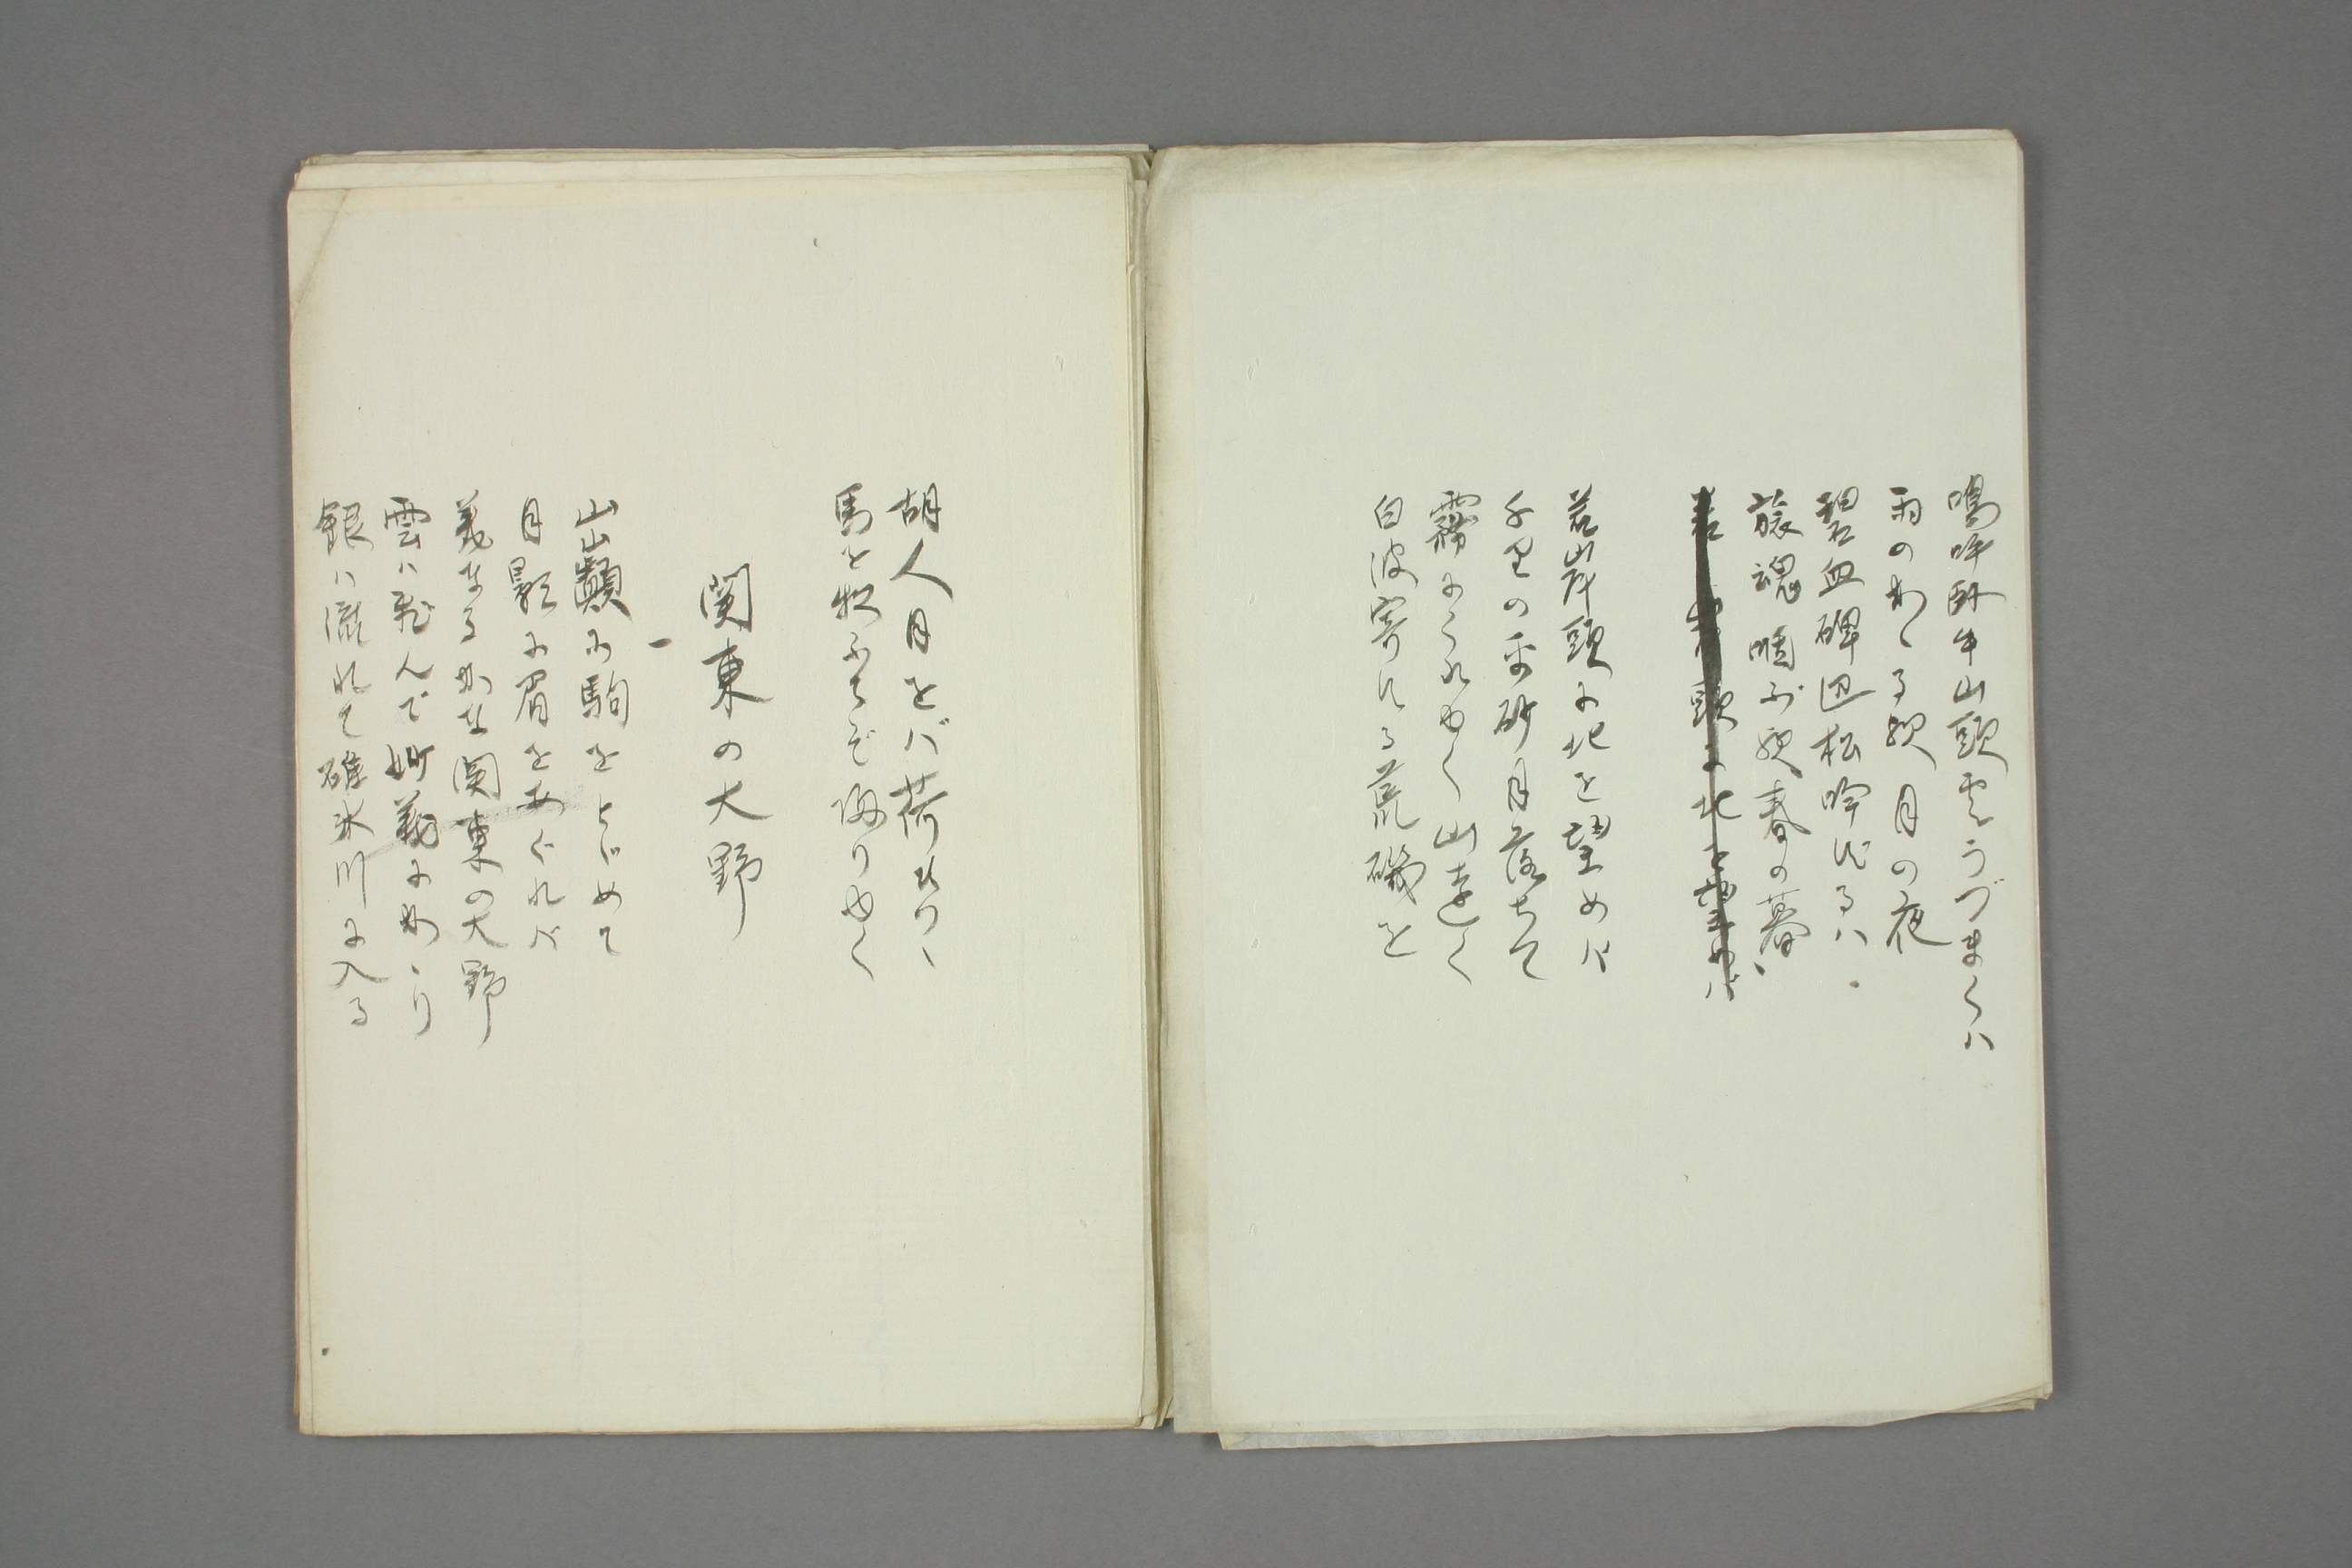 嗚呼臥牛山頭雲うづまくハ
雨のかゝる歟月の夜
碧血碑辺松吟ずるハ
旅魂咽ぶ歟春の暮
若山岸頭に北を望めバ
千里の平砂月落ちて
霧よくれゆく山遠く
白波寄する荒磯を
胡人月をバ荷ひつゝ
馬を牧ふてぞ帰りゆく
関東の大野
一
山巓に駒をとゞめて
月影に眉をあぐれバ
美なるかな関東の大野
雲ハ飛んで妙義にかゝり
銀ハ流れて碓氷川に入る